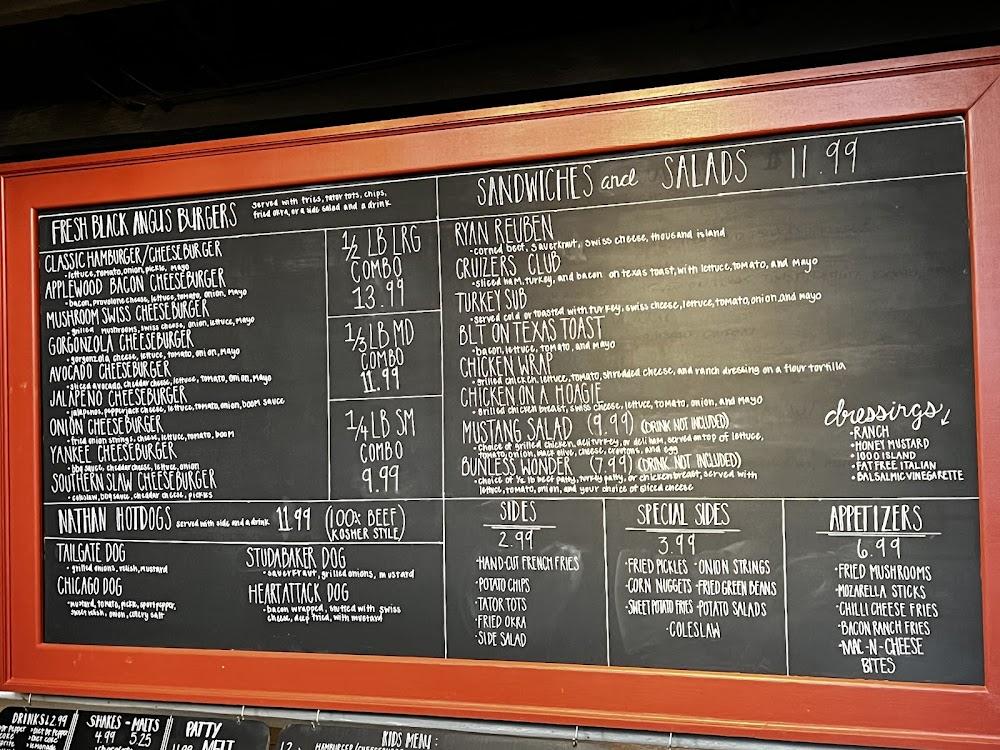 FRESH BLACK ANGUS BURGERS
served with fries, tator tots, chips,
fried okra, or a side salad and a drink
CLASSIC HAMBURGER/CHEESEBURGER
•lettuce, tomato, onion, pickle, mayo
APPLEWOOD BACON CHEESEBURGER
•bacon, provolone cheese, lettuce, tomato, onion, mayo
MUSHROOM SWISS CHEESEBURGER
•grilled mushrooms, swiss cheese, onion, lettuce, mayo
GORGONZOLA CHEESEBURGER
•gorgonzola cheese, lettuce, tomato, onion, mayo
AVOCADO CHEESEBURGER
•sliced avocado, cheddar cheese, lettuce, tomato, onion, mayo
JALAPENO CHEESEBURGER
•jalapenos, pepperjack cheese, lettuce, tomato, onion, boom sauce
ONION CHEESEBURGER
•fried onion strings, cheese, lettuce, tomato, boom
YANKEE CHEESEBURGER
•bbq sauce, cheddar cheese, lettuce, onion
SOUTHERN SLAW CHEESEBURGER
•coleslaw, bbq sauce, cheddar cheese, pickles
1/2 LB LRG
COMBO
13.99
1/3 LB MD
COMBO
11.99
1/4 LB SM
COMBO
9.99
NATHAN HOTDOGS served with side and a drink 11.99 (100% BEEF)
(KOSHER STYLE)
TAILGATE DOG
•grilled onions, relish, mustard
CHICAGO DOG
•mustard, tomato, pickle, sport pepper,
sweet relish, onion, celery salt
STUDABAKER DOG
•sauerkraut, grilled onions, mustard
HEARTATTACK DOG
•bacon wrapped, stuffed with swiss
cheese, deep fried, with mustard
SANDWICHES and SALADS 11.99
RYAN REUBEN
•corned beef, sauerkraut, swiss cheese, thousand island
CRUIZERS CLUB
•sliced ham, turkey, and bacon on texas toast, with lettuce, tomato, and mayo
TURKEY SUB
•served cold or toasted with turkey, swiss cheese, lettuce, tomato, onion, and mayo
BLT ON TEXAS TOAST
•bacon, lettuce, tomato, and mayo
CHICKEN WRAP
•grilled chicken, lettuce, tomato, shredded cheese, and ranch dressing on a flour tortilla
CHICKEN ON A HOAGIE
•grilled chicken breast, swiss cheese, lettuce, tomato, onion, and mayo
MUSTANG SALAD (9.99) (DRINK NOT INCLUDED)
•choice of grilled chicken, deli turkey, or deli ham, served on top of lettuce,
tomato, onion, black olive, cheese, croutons, and egg
BUNLESS WONDER (7.99) (DRINK NOT INCLUDED)
•choice of 1/2 lb beef patty, turkey patty, or chicken breast, served with
lettuce, tomato, onion, and your choice of sliced cheese
dressings↓
•RANCH
•HONEY MUSTARD
•1000 ISLAND
•FAT FREE ITALIAN
•BALSALMIC VINEGARETTE
SIDES
2.99
•HAND-CUT FRENCH FRIES
•POTATO CHIPS
•TATOR TOTS
•FRIED OKRA
•SIDE SALAD
SPECIAL SIDES
3.99
•FRIED PICKLES •ONION STRINGS
•CORN NUGGETS •FRIED GREEN BEANS
•SWEET POTATO FRIES •POTATO SALADS
•COLESLAW
APPETIZERS
6.99
•FRIED MUSHROOMS
•MOZARELLA STICKS
•CHILLI CHEESE FRIES
•BACON RANCH FRIES
•MAC-N-CHEESE
BITES
DRINKS 2.99
•Diet Dr Pepper
•Diet Coke
•lemonade
SHAKES - MALTS
4.99 5.25
PATTY
MELT
KIDS MENU: